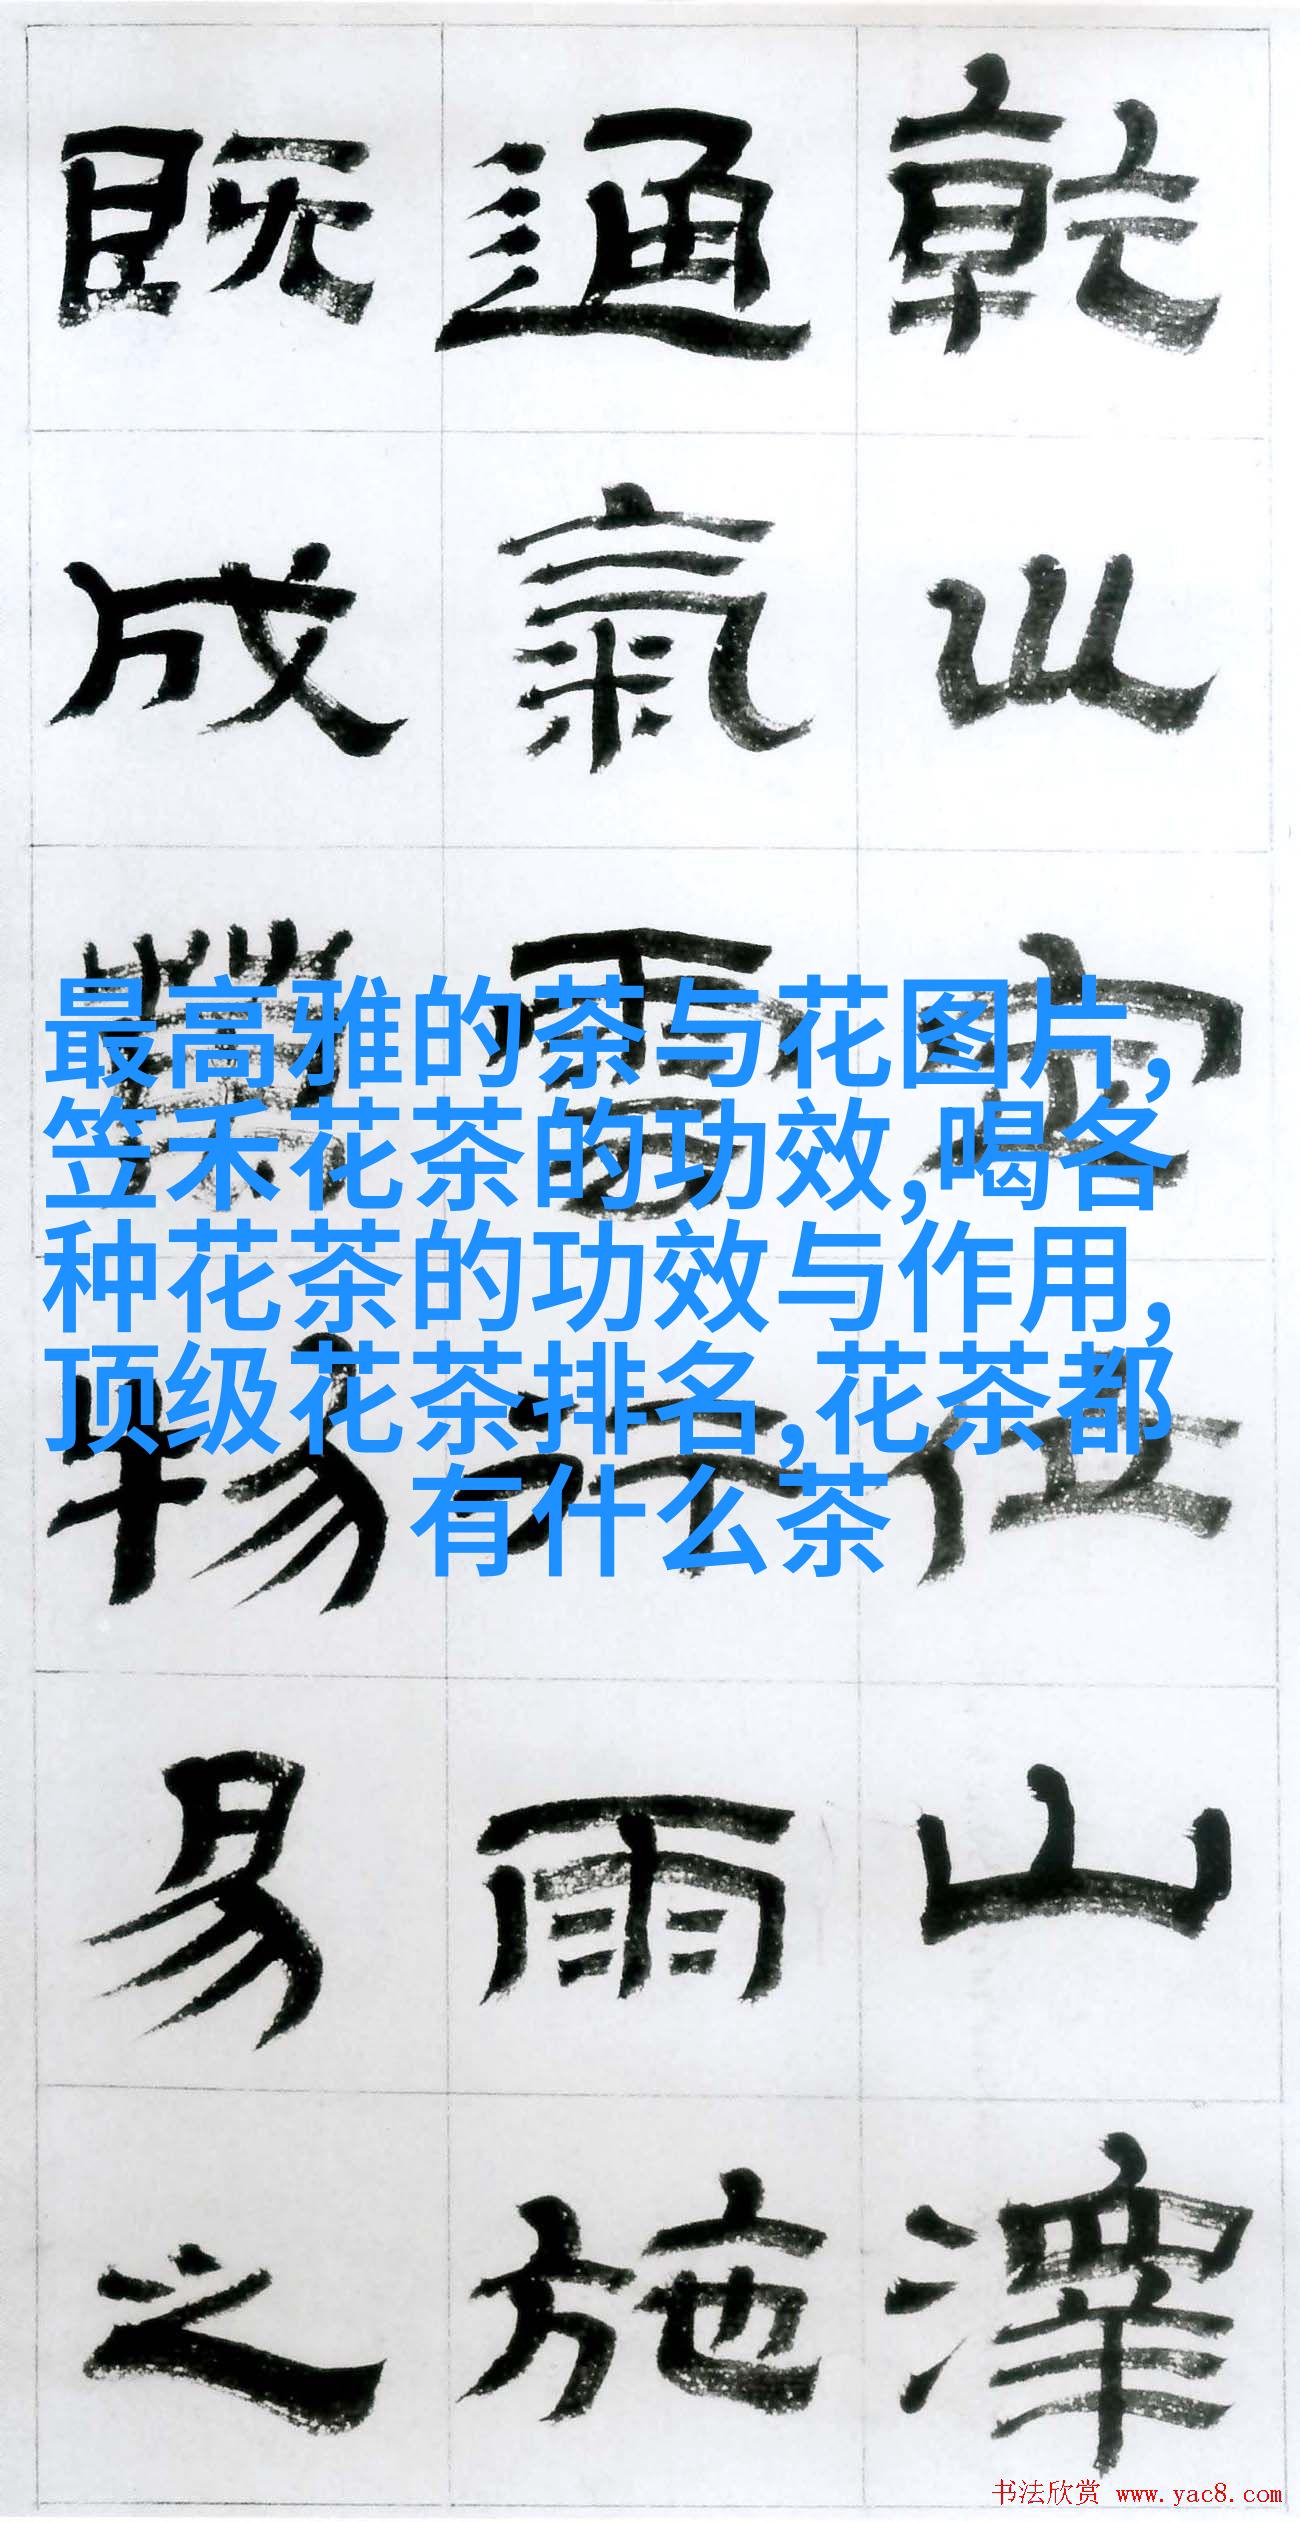 乾巛定位山澤
通氣雲行雨施
既成萬物易之
最高雅的茶与花图片,
笠禾花茶的功效,喝各
种花茶的功效与作用,
顶级花茶排名,花茶都
有什么茶
书法欣赏 www.yac8.com